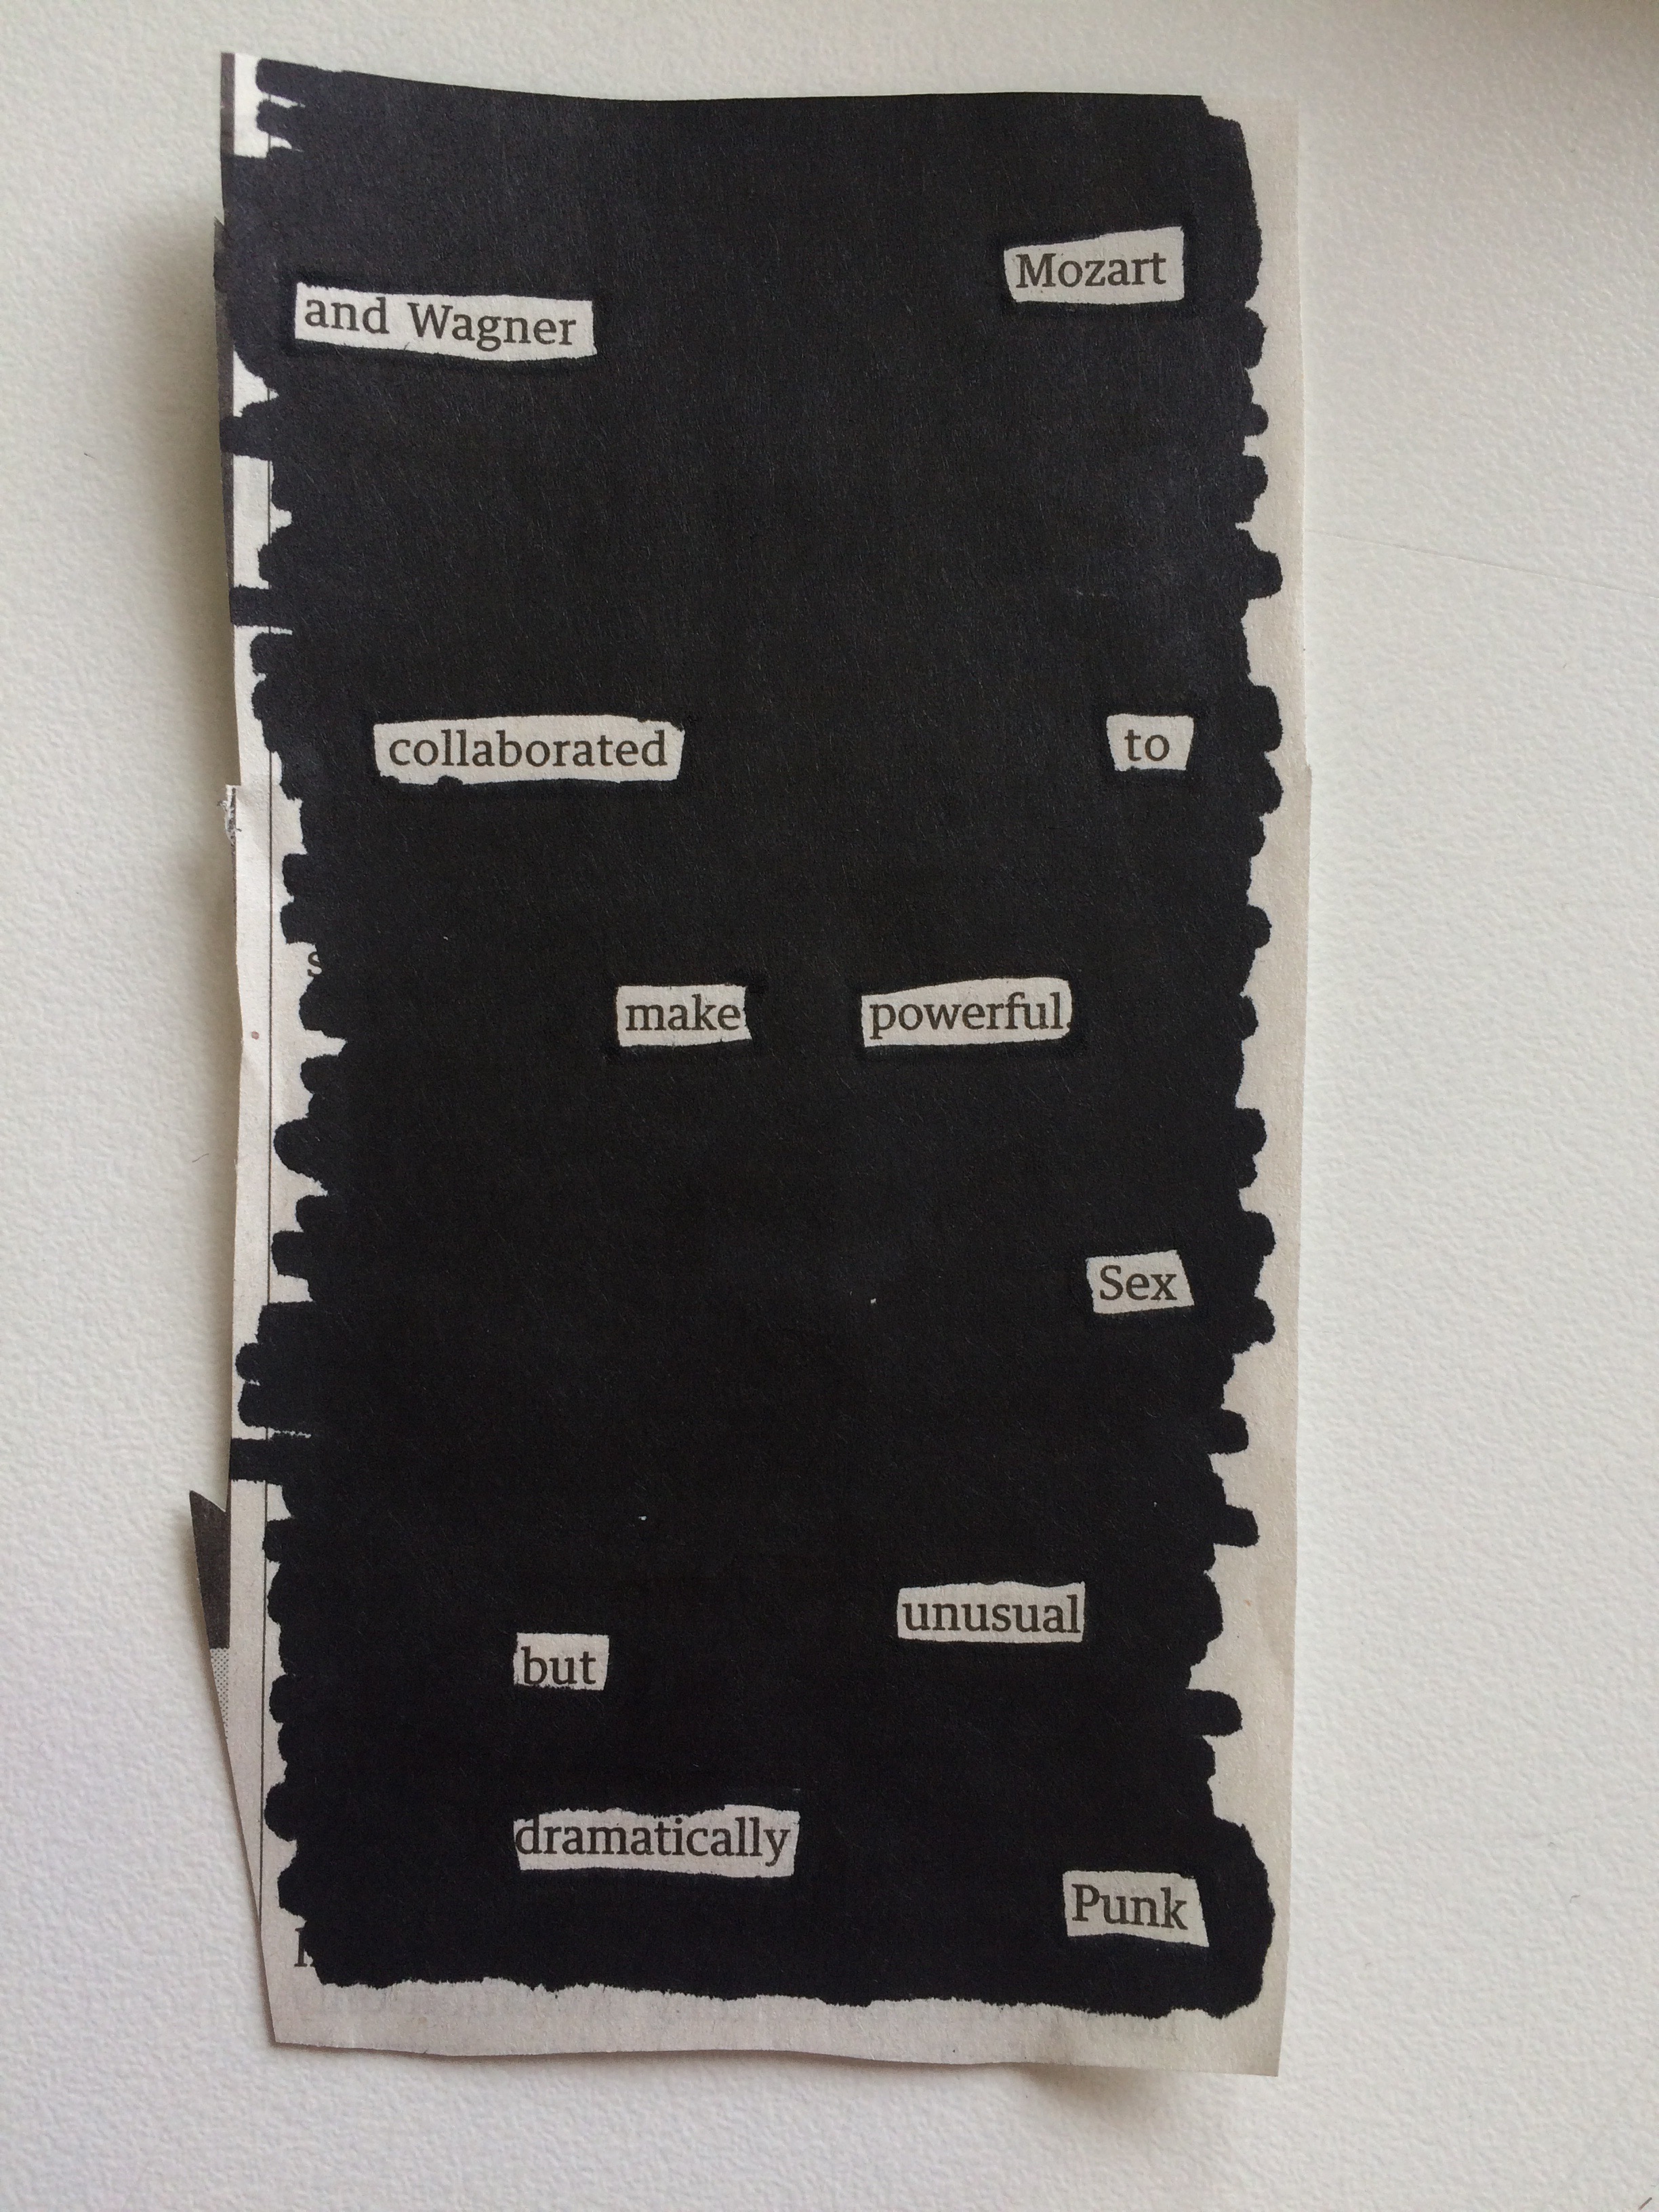 Mozart
and Wagner
collaborated to
make powerful
Sex
unusual
but
dramatically
Punk